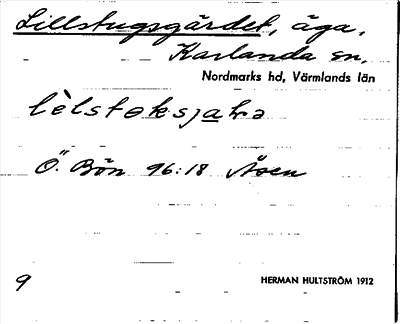 Lillstugsgärdet, äga,
Karlanda sn,
Nordmarks hd, Värmlands län
lèlstoksjahə
Ö. Bön 96:18 Åsen
9 HERMAN HULTSTRÖM 1912